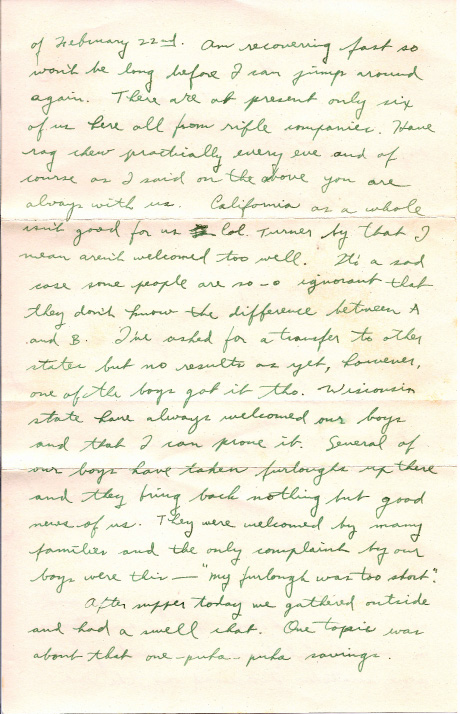 of February 22nd. Am recovering fast so
won't be long before I can jump around
again. There are at present only six
of us here all from rifle companies. Have
rag chew practically every eve and of
course as I said on the above you are
always with us. California as a whole
isn't good for us Col. Turner by that I
mean aren't welcomed too well. It's a sad
case some people are so-o ignorant that
they don't know the difference between A
and B. I've asked for a transfer to other
states but no results as yet, however,
one of the boys got it tho. Wisconsin
state have always welcomed our boys
and that I can prove it. Several of
our boys have taken furloughs up there
and they bring back nothing but good
news of us. They were welcomed by many
families and the only complaint by our
boys were this — "my furlough was too short".
After supper today we gathered outside
and had a swell chat. One topic was
about that one-puka-puka savings.